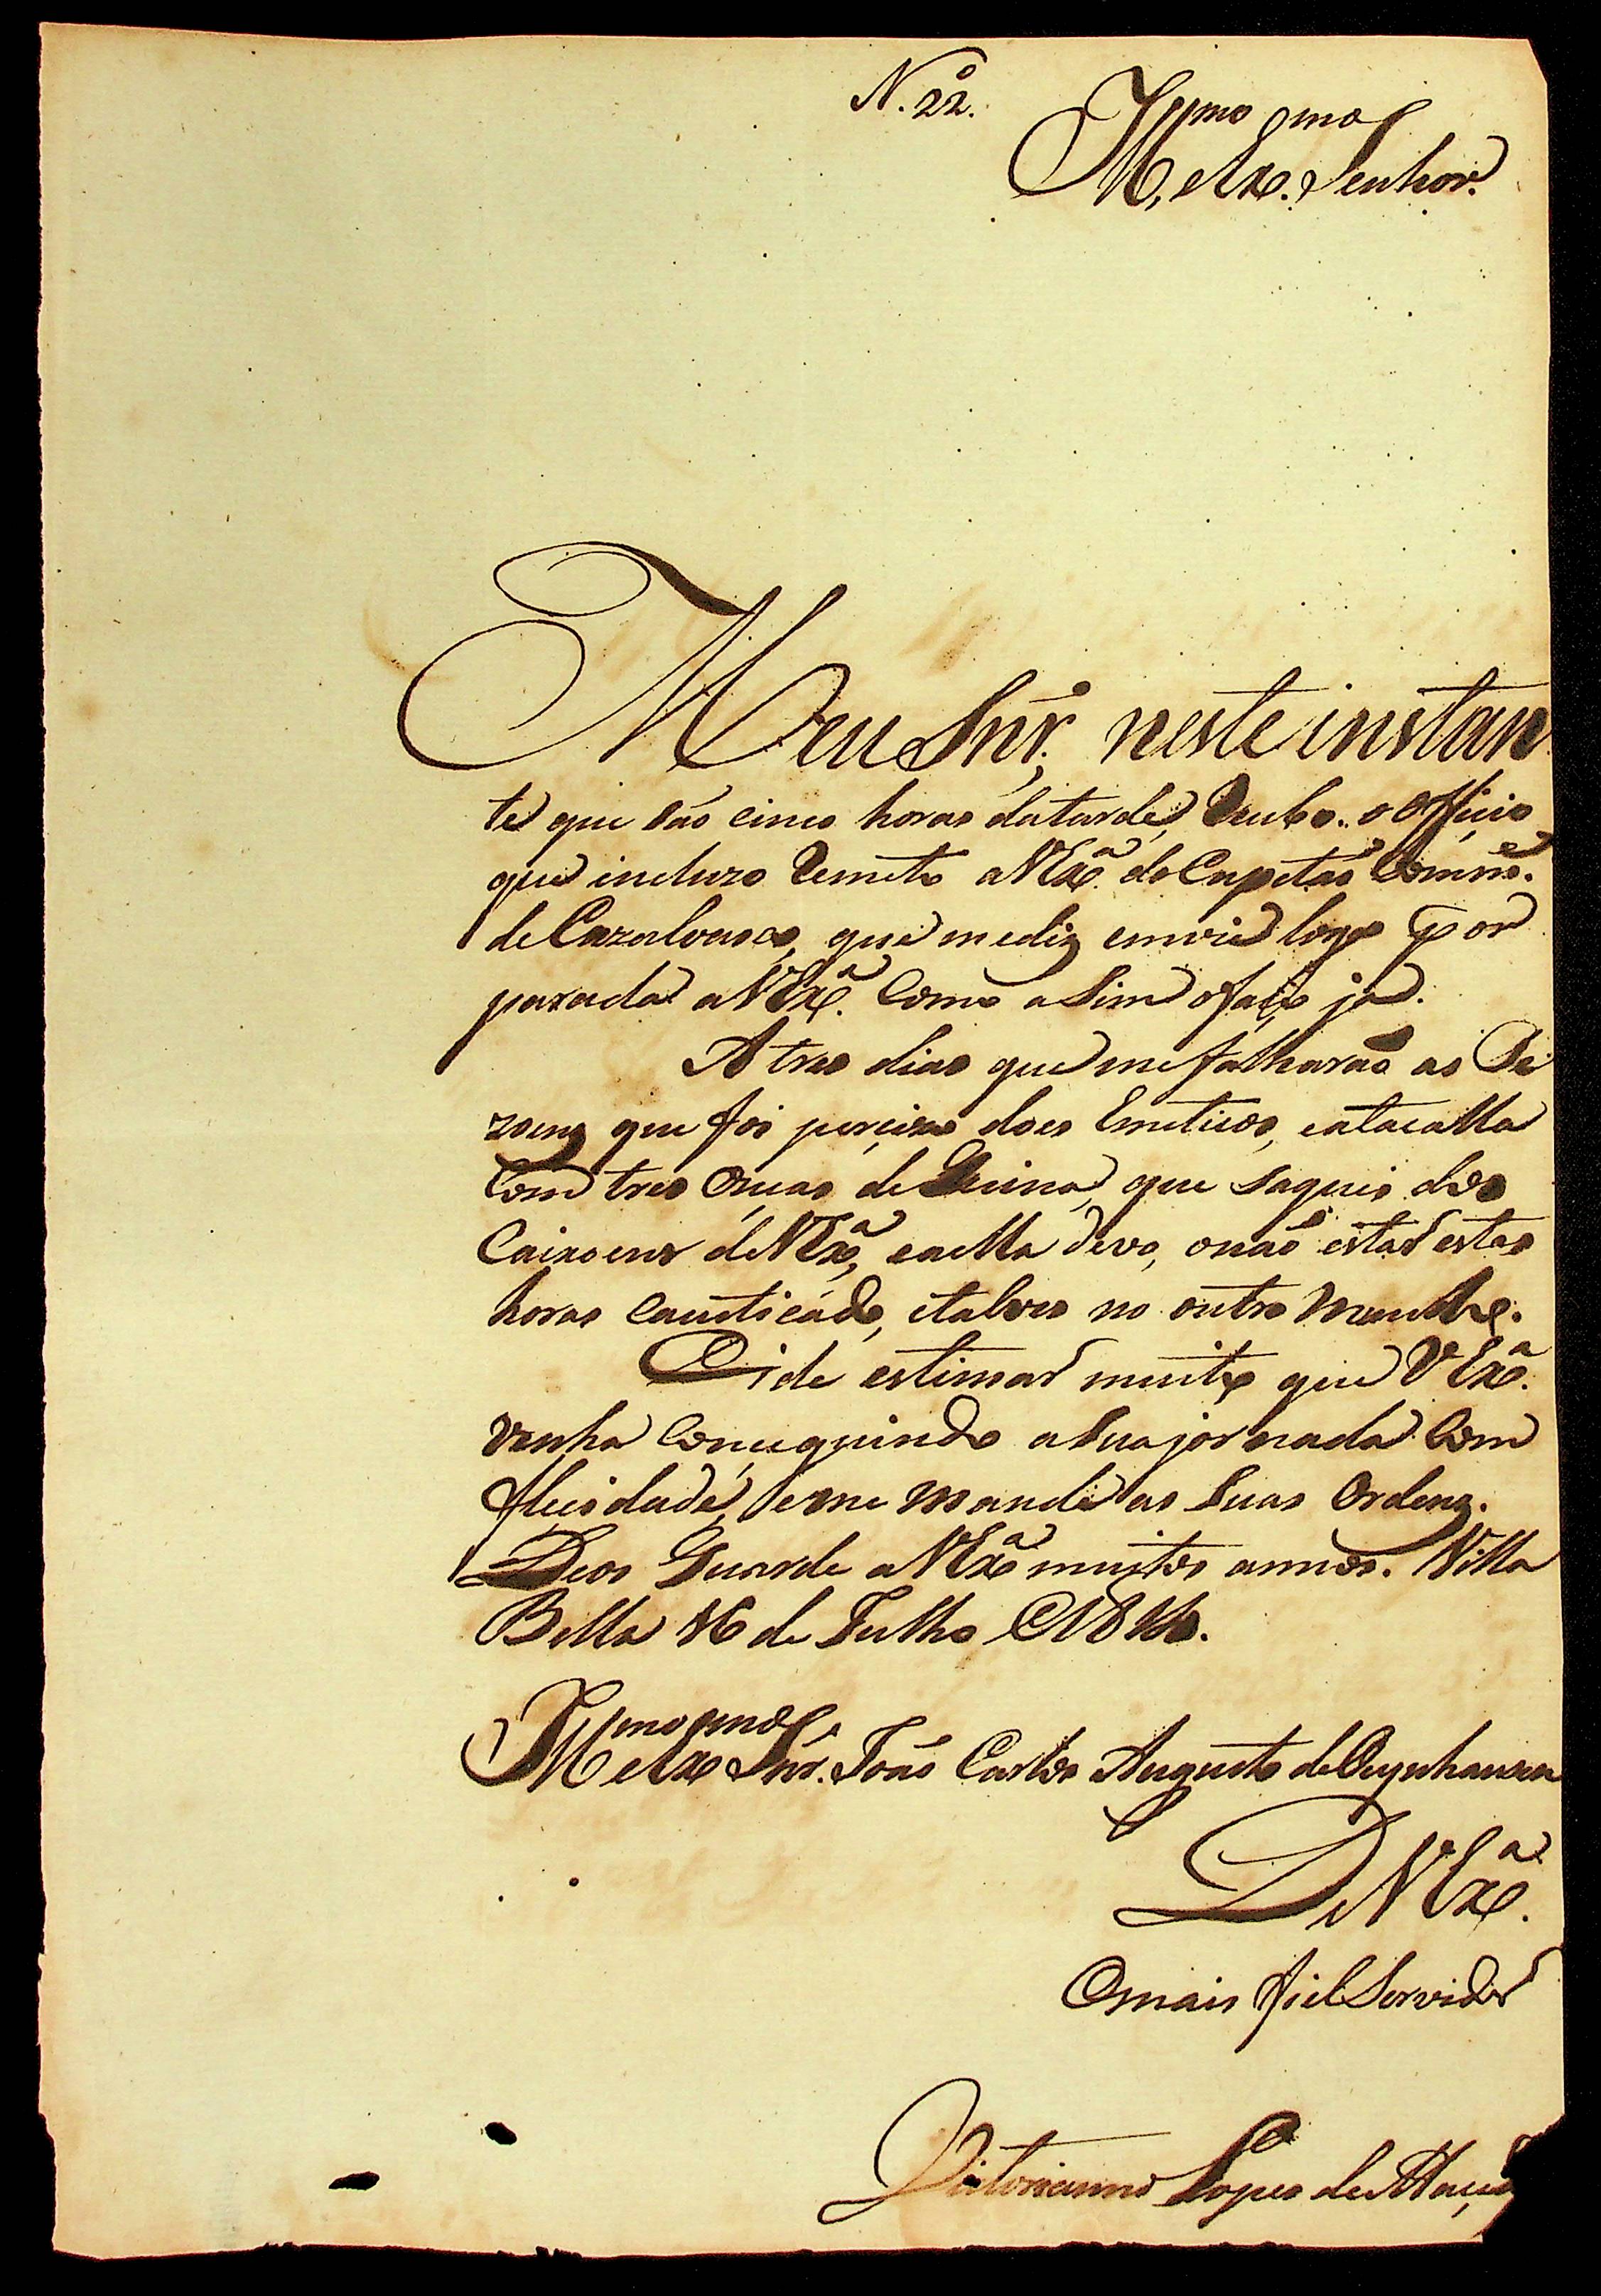 N.º 22.
Ill.mo e Ex.mo Senhor.
Meu Snr.; neste instan
te que são cinco horas datarde, Recebo o Officio
que incluzo Remeto a VEx.ª do Capitaõ Comm.e
de Cazalvasco, que mediz envie logo por
parada a VEx.ª Como asim ofaço já.
A tres dias que mefalharaõ as Se
zoens que foi percizo does Emeticos, eatacalla
Com tres Oncas de Quina, que saquei dos
Caixoens deVEx.ª, eaella devo, onaõ estar estas
horas Causticádo, etalves no outro Mundo.
Eide estimar muito que VEx.ª
venha Conseguindo aSuajornada Com
felicidade, eme mande as Suas Ordens.
Deos Guarde a VEx.ª muitos annos. Villa
Bella 16 de Julho
Ill.mo e Ex.mo Snr. Joaõ Carlos Augusto de Oeynhausen
De VEx.ª
Omais fiel Servidor
Victorianno Lopes de